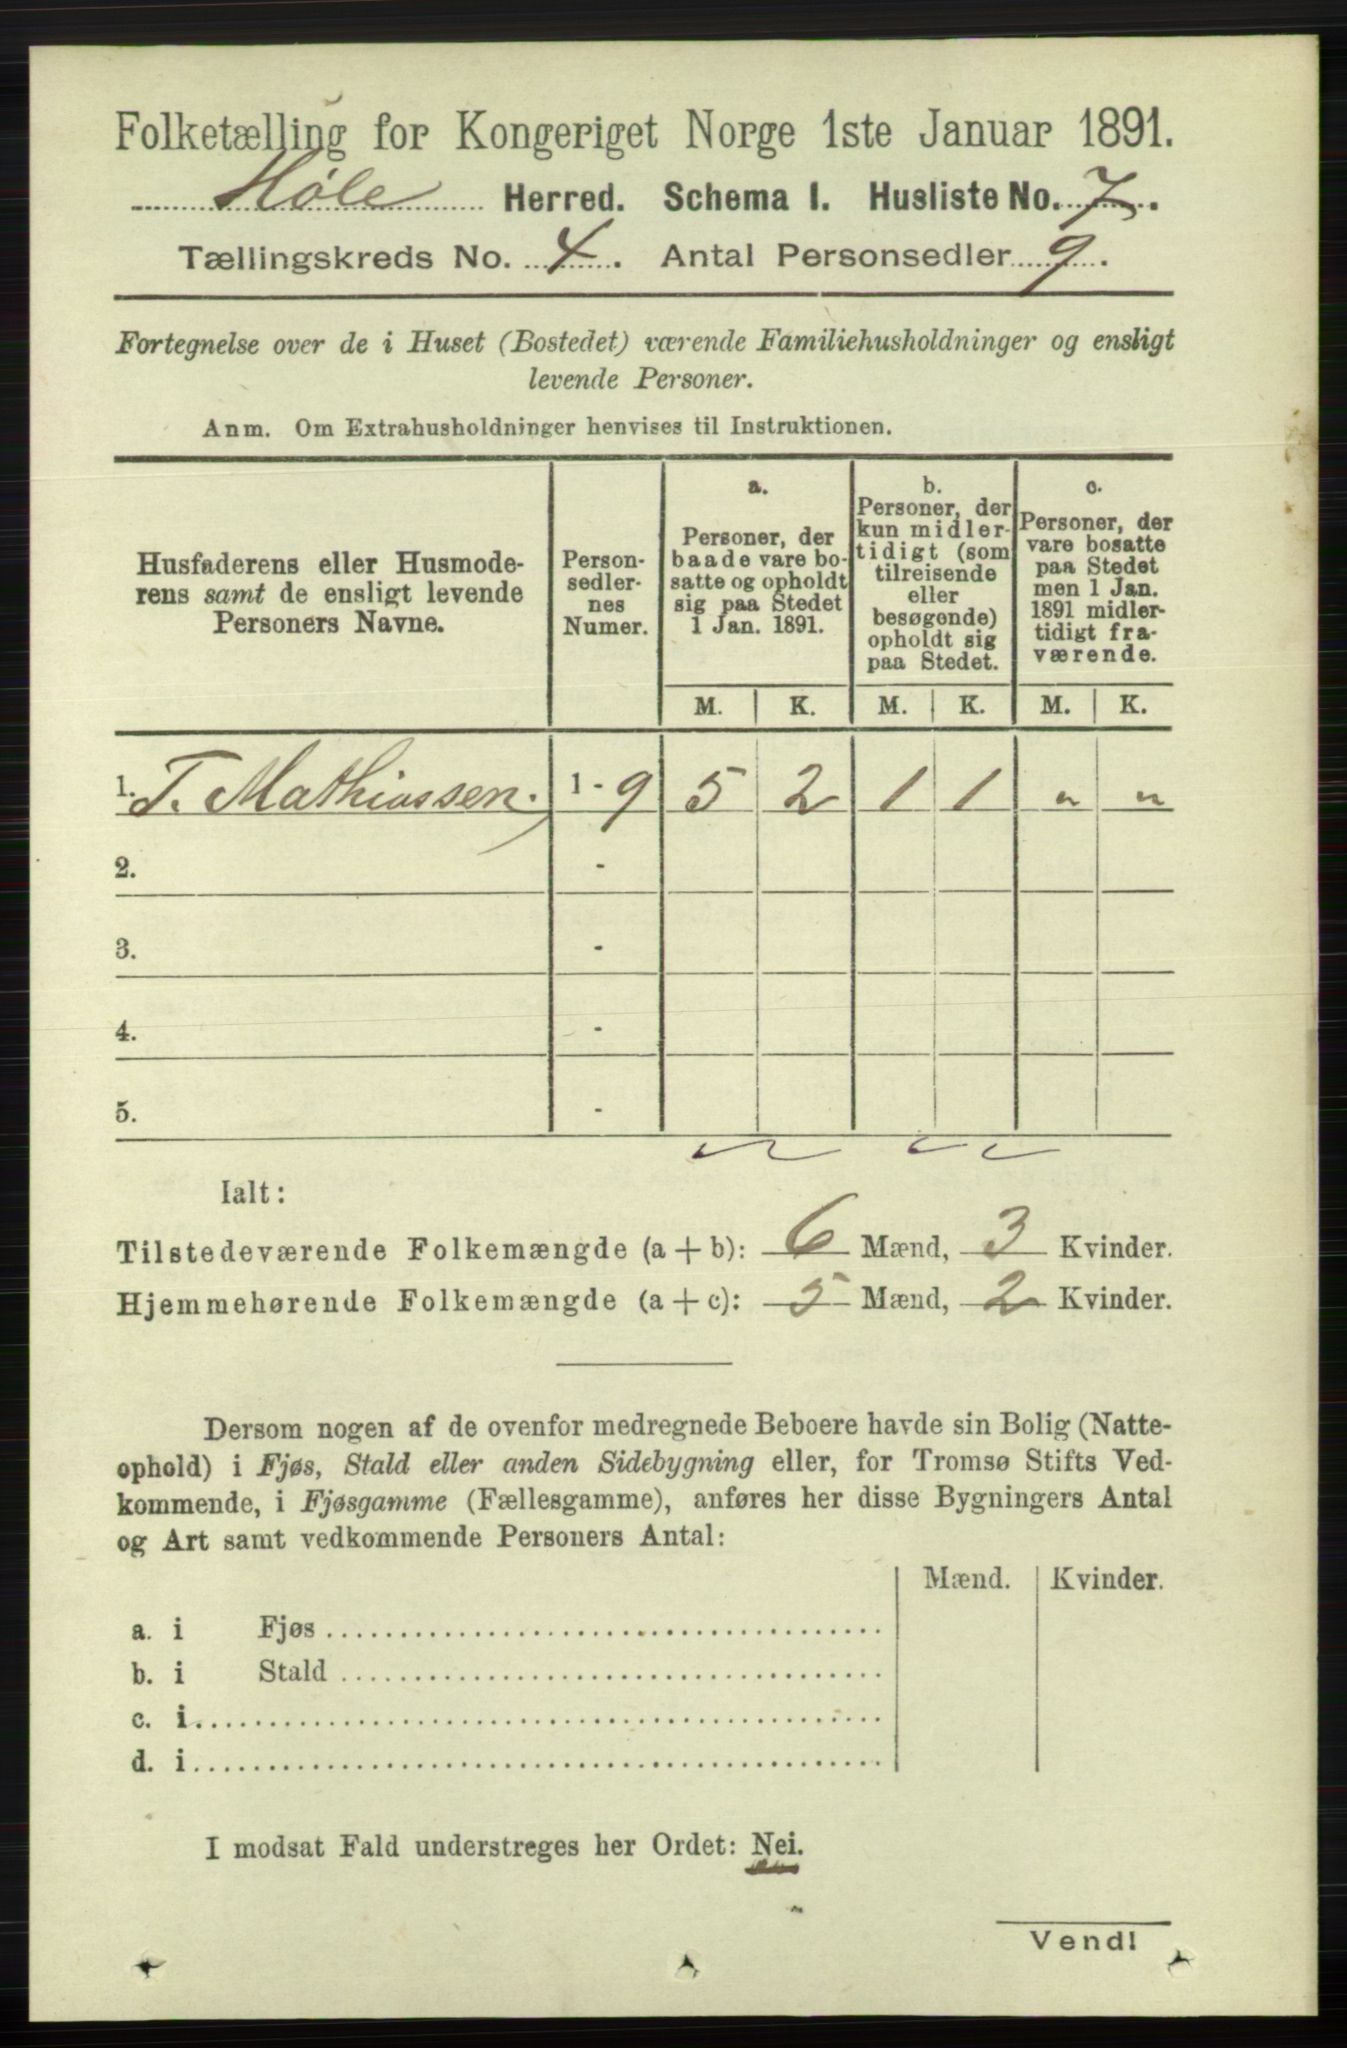 Folketælling for Kongeriget Norge 1ste Januar 1891.
Høle Herred. Schema I. Husliste No. 7.
Tællingskreds No. 4. Antal Personsedler 9.
Fortegnelse over de i Huset (Bostedet) værende Familiehusholdninger og ensligt
levende Personer.
Anm. Om Extrahusholdninger henvises til Instruktionen.
Husfaderens eller Husmode-
rens samt de ensligt levende
Personers Navne.
Person-
sedler-
nes
Numer.
a.
Personer, der
baade vare bo-
satte og opholdt
sig paa Stedet
1 Jan. 1891.
b.
Personer, der
kun midler-
tidigt (som
tilreisende
eller
besøgende)
opholdt sig
paa Stedet.
c.
Personer, der
vare bosatte
paa Stedet
men 1 Jan.
1891 midler-
tidigt fra-
værende.
M. K. M. K. M. K.
1. T. Mathiassen. 1 - 9 5 2 1 1 " "
2. -
3. -
4. -
5. -
Ialt:
Tilstedeværende Folkemængde (a + b): 6 Mænd, 3 Kvinder.
Hjemmehørende Folkemængde (a + c): 5 Mænd, 2 Kvinder.
Dersom nogen af de ovenfor medregnede Beboere havde sin Bolig (Natte-
ophold) i Fjøs, Stald eller anden Sidebygning eller, for Tromsø Stifts Ved-
kommende, i Fjøsgamme (Fællesgamme), anføres her disse Bygningers Antal
og Art samt vedkommende Personers Antal:
Mænd. Kvinder.
a. i Fjøs
b. i Stald
c. i
d. i
I modsat Fald understreges her Ordet: Nei.
Vend!